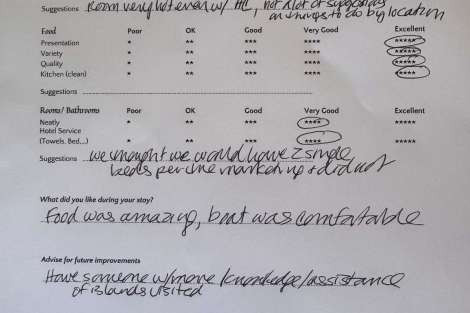 Suggestions Room very hot even w/ AC, not a lot of suggestions
on things to do by location
Food Poor OK Good Very Good Excellent
Presentation * ** *** **** *****
Variety * ** *** **** *****
Quality * ** *** **** *****
Kitchen (clean) * ** *** **** *****
Suggestions
Rooms/ Bathrooms Poor OK Good Very Good Excellent
Neatly * ** *** **** *****
Hotel Service
(Towels, Bed,...) * ** *** **** *****
Suggestions we thought we would have 2 single
beds per the marketing + did not
What did you like during your stay?
Food was amazing, boat was comfortable
Advise for future improvements
Have someone w/more knowledge/assistance
of islands visited